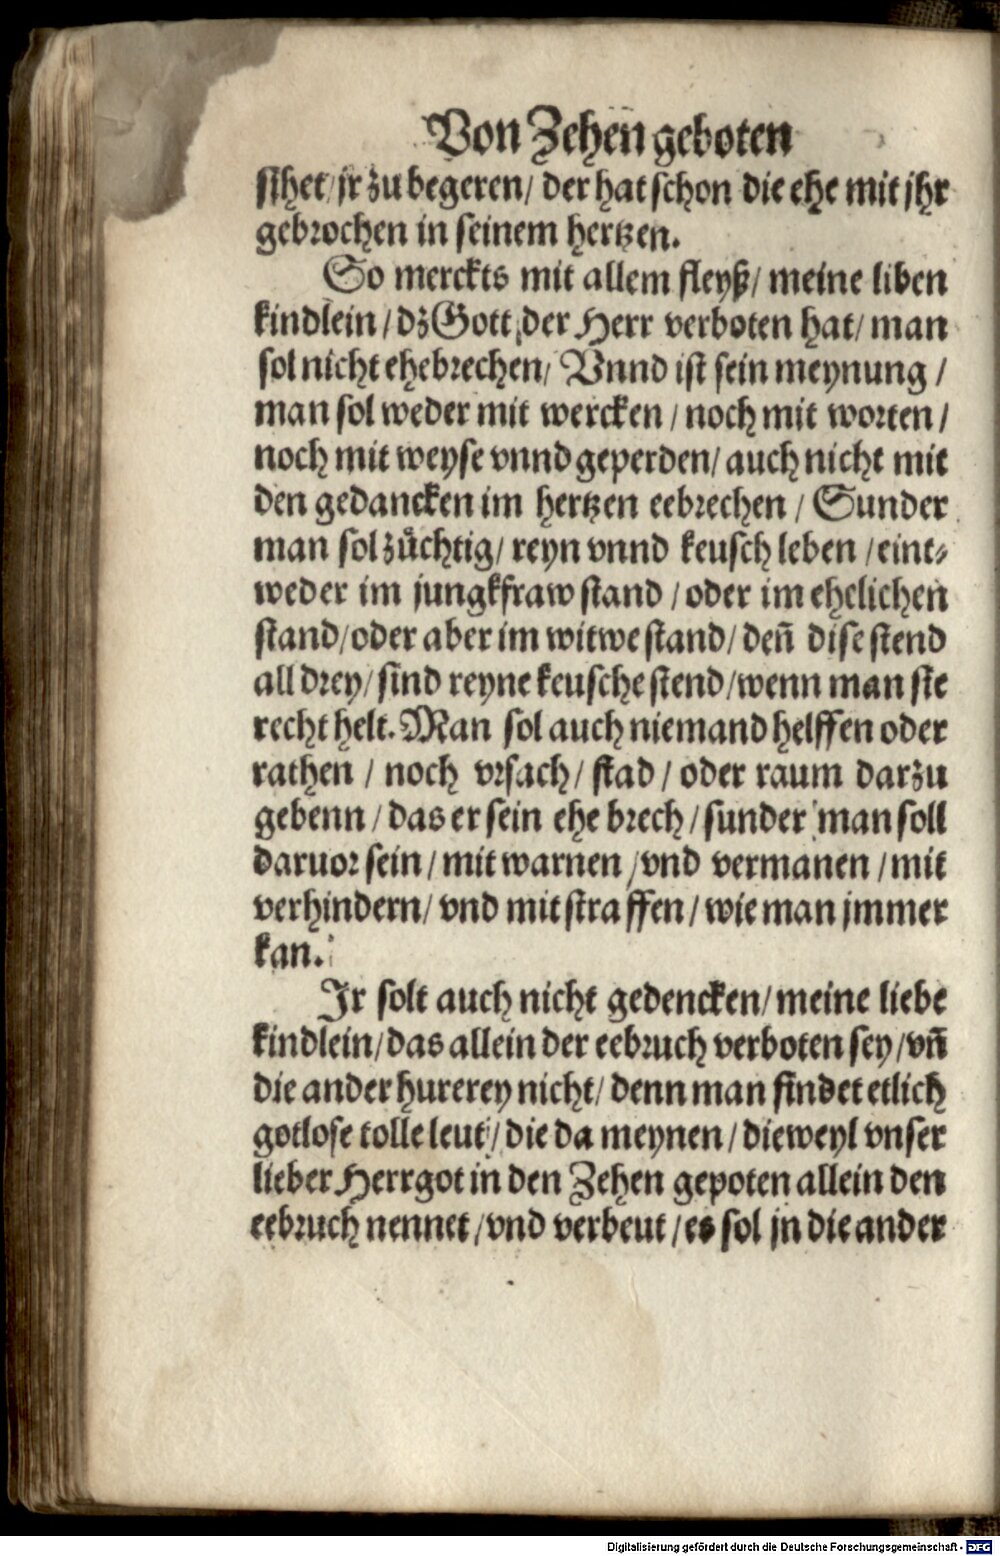 Von Zehen geboten
sihet/ jr zu begeren/ der hat schon die ehe mit jhr
gebrochen in seinem hertzen.
So merckts mit allem fleyß/ meine liben
kindlein/ dz Gott der Herr verboten hat/ man
sol nicht ehebrechen/ Vnnd ist sein meynung/
man sol weder mit wercken/ noch mit worten/
noch mit weyse vnnd geperden/ auch nicht mit
den gedancken im hertzen eebrechen/ Sunder
man sol zůchtig/ reyn vnnd keusch leben/ eint⸗
weder im jungkfraw stand/ oder im ehelichen
stand/ oder aber im witwe stand/ deñ dise stend
all drey/ sind reyne keusche stend/ wenn man sie
recht helt. Man sol auch niemand helffen oder
rathen/ noch vrsach/ stad/ oder raum darzu
gebenn/ das er sein ehe brech/ sunder man soll
daruor sein/ mit warnen/ vnd vermanen/ mit
verhindern/ vnd mit straffen/ wie man jmmer
kan.
Jr solt auch nicht gedencken/ meine liebe
kindlein/ das allein der eebruch verboten sey/ vñ
die ander hurerey nicht/ denn man findet etlich
gotlose tolle leut/ die da meynen/ dieweyl vnser
lieber Herrgot in den Zehen gepoten allein den
eebruch nennet/ vnd verbeut/ es sol jn die ander
Digitalisierung gefördert durch die Deutsche Forschungsgemeinschaft - DFG